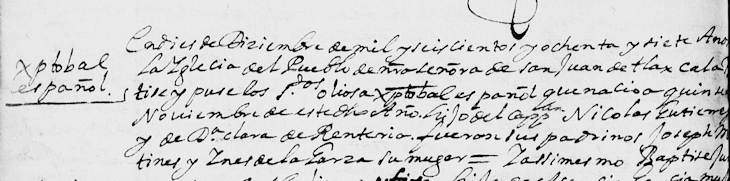 xptobal
español.
En dies de Diziembre de mil y seiscientos y ochenta y siete Años
La Yglecia del Pueblo de nra señora de San Juan de tlaxcala
tise y puse los s.tos olios a xptobal español que nacio a quin
Noviembre de este dho Año. hijo del capp.an Nicolas Gutierre
y de D.a Clara de Renteria. fueron sus padrinos Joseph M
tines y Ynes de la Garza su muger = Yassimesmo Baptise Ju